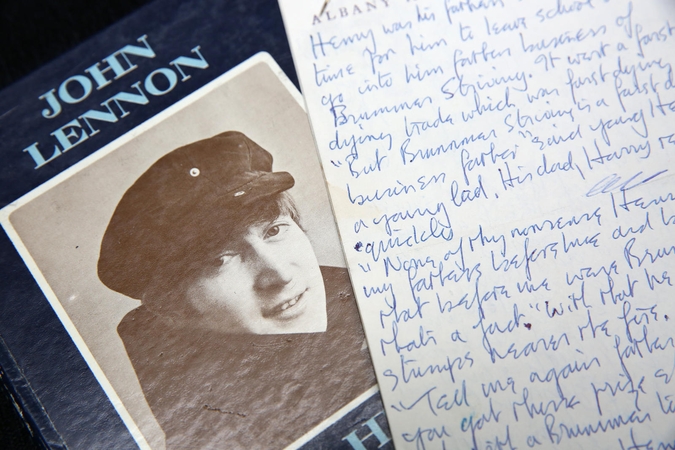 JOHN
LENNON
H
ALBANY
Henry was his fathers
time for him to leave school
go into him fathers buseness of
Brummer Striving. It wart a farst
dying trade which was farst dying
"But Brummer Strivings a farst
business farther" said young
a young lad. His dad, Harry
quickly
"None of thy nonsense
my fathers before me and
that before me were
thats a fact" With that he
stumps nearer the fire.
"Tell me again father
you got those prize
a Brummer